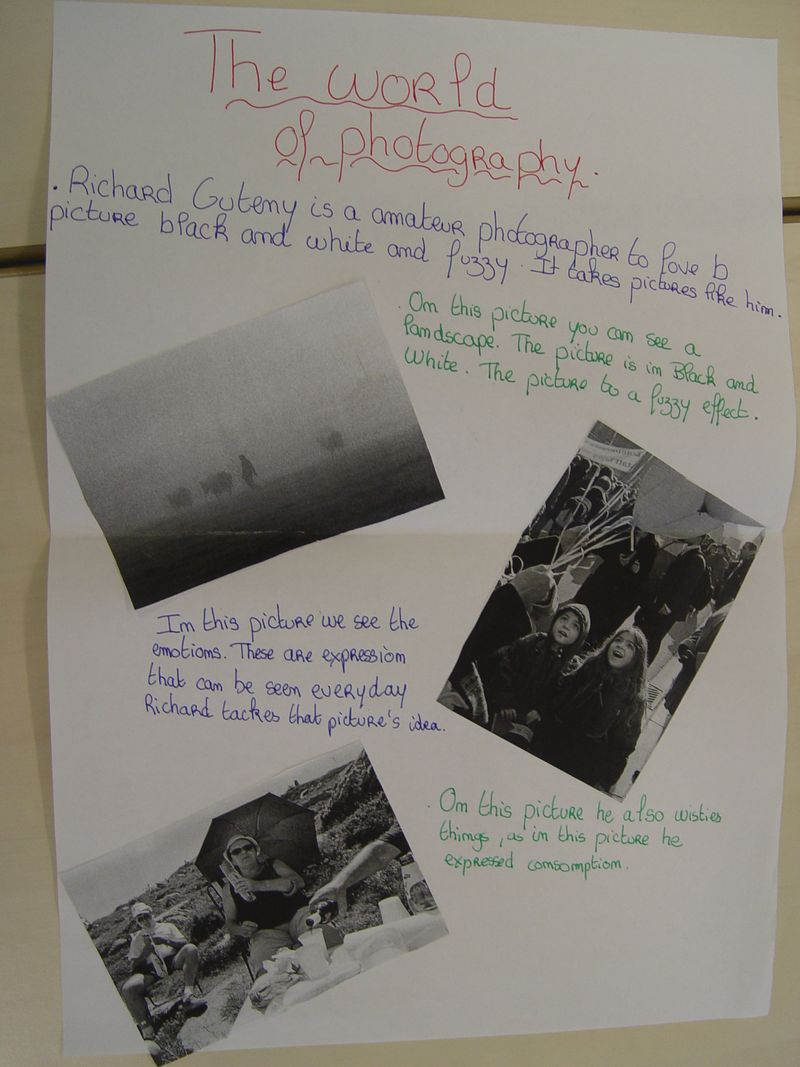 The world
of photography.
. Richard Guteny is a amateur photographer to love b
picture black and white and fuzzy. It takes pictures like him.
. On this picture you can see a
landscape. The picture is in Black and
White. The picture to a fuzzy effect.
In this picture we see the
emotions. These are expression
that can be seen everyday
Richard tackes that picture's idea.
. On this picture he also wisties
things, as in this picture he
expressed consomption.